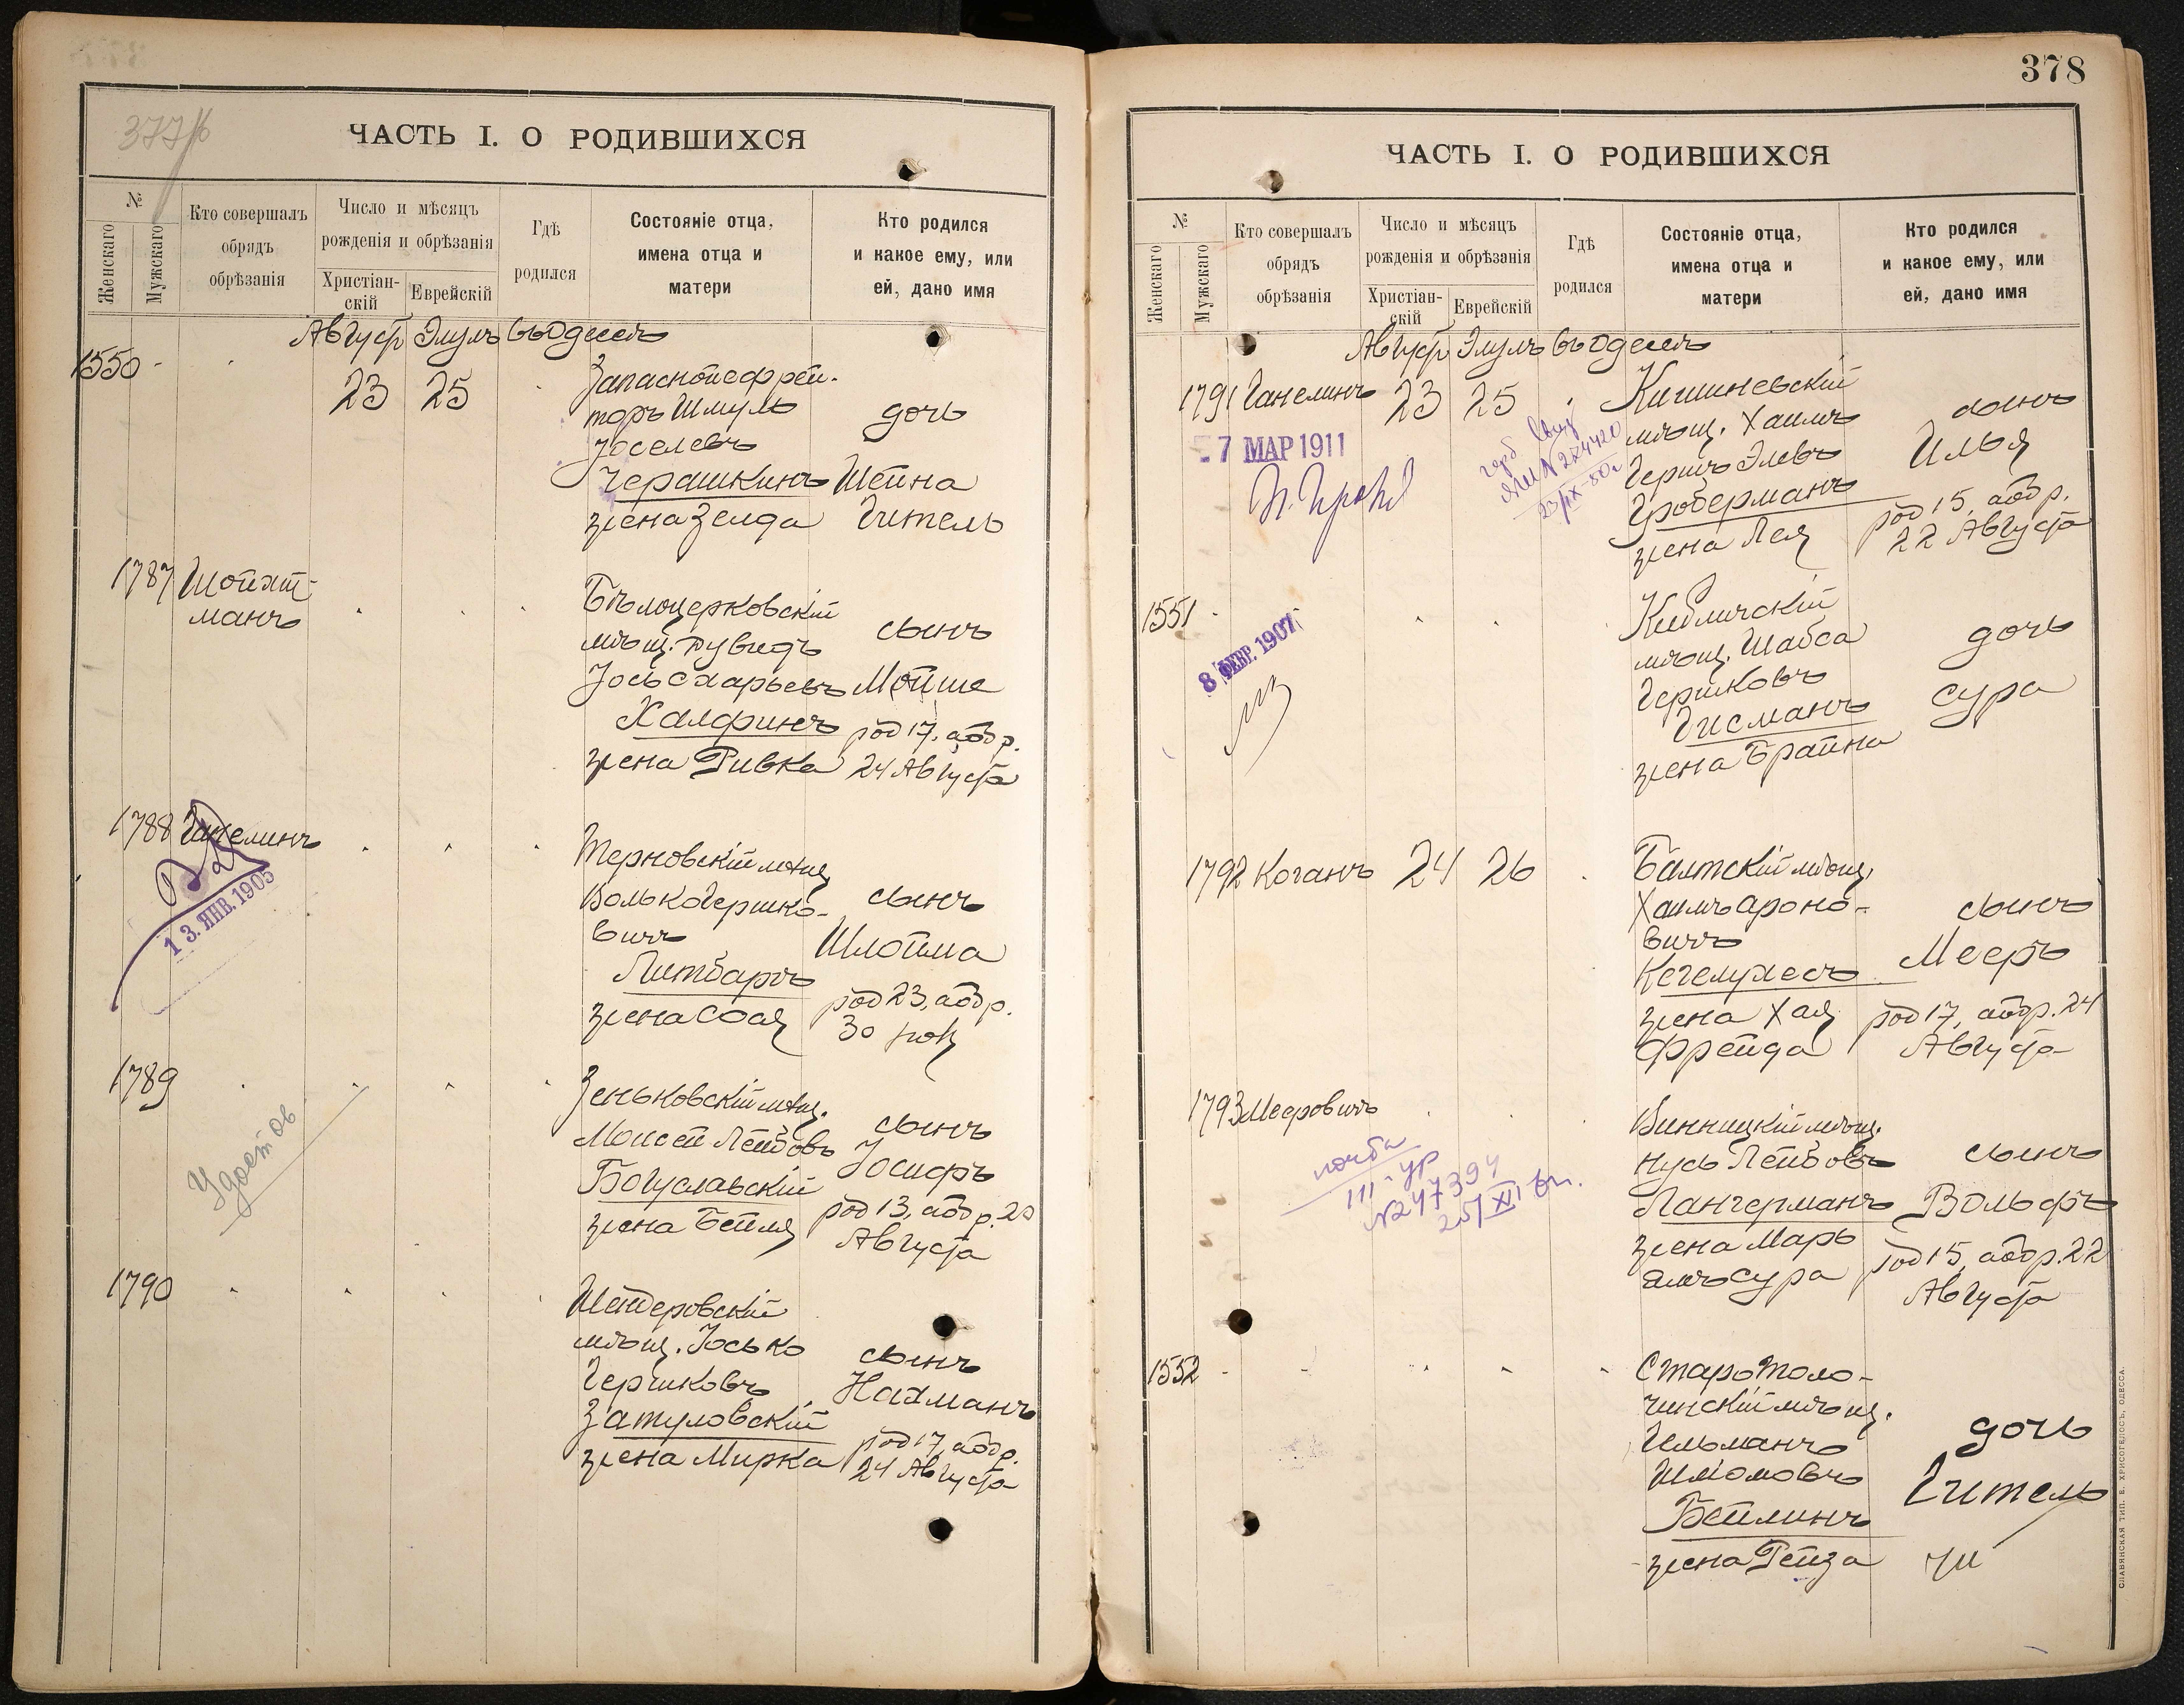 377 об
ЧАСТЬ I. О РОДИВШИХСЯ
№
Женскаго
Мужскаго
Кто совершалъ
обрядъ
обрѣзанія
Число и мѣсяцъ
рожденія и обрѣзанія
Христіан-
скій
Еврейскій
Гдѣ
родился
Состояніе отца,
имена отца и
матери
Кто родился
и какое ему, или
ей, дано имя
Августъ Элулъ въ Одессѣ
1550 - 23 25
Запасной ефрей-
торъ Шмуль
Іоселевъ
Черашкинъ
жена Зелда
дочь
Шейна
Гитель
1787 Шойхт-
манъ
Бѣлоцерковскій
мѣщ. Дувидъ
Іось Сахарьевъ
Халфинъ
жена Ривка
сынъ
Мойше
род 17, а обр.
24 Августа
1788 Ганелинъ
13. ЯНВ. 1905
Терновскій мѣщ
Волько Гершко-
вичъ
Литваръ
жена Соая
сынъ
Шлойма
род 23, а обр.
30
1789
Удостов
Зеньковскій мѣщ.
Моисей Лейбовъ
Богуславскій
жена Бейля
сынъ
Іосифъ
род 13, а обр. 20
Августа
1790
мѣщ. Іосько
Гершковъ
Затуловскій
жена Мирка
сынъ
Нахманъ
род 17, а обр.
24 Августа
378
ЧАСТЬ I. О РОДИВШИХСЯ
№
Женскаго
Мужскаго
Кто совершалъ
обрядъ
обрѣзанія
Число и мѣсяцъ
рожденія и обрѣзанія
Христіан-
скій
Еврейскій
Гдѣ
родился
Состояніе отца,
имена отца и
матери
Кто родился
и какое ему, или
ей, дано имя
Августъ Элулъ въ Одессѣ
1791 Ганелинъ 23 25
7 МАР 1911
Кишиневскій
мѣщ. Хаимъ
Гершъ Элевъ
Гроберманъ
жена Лея
сынъ
Илья
род 15, а обр.
22 Августа
1551 -
8 ФЕВР. 1907
Кибличскій
мѣщ. Шабса
Гершковъ
Гисманъ
жена Брайна
дочь
Сура
1792 Коганъ 24 26
Балтскій мѣщ.
Хаимъ Ароно-
вичъ
Кегелихесъ
жена Хая
Фрейда
сынъ
Мееръ
род 17, а обр. 24
Августа
1793 Мееровичъ
III-УР
№ 247394
25/XII
Винницкій мѣщ.
Нусь Лейбовъ
Лангерманъ
жена Марь
ямъ Сура
сынъ
Вольфъ
род 15, а обр. 22
Августа
1552 -
Старотоло-
чинскій мѣщ.
Гильманъ
Шліомовъ
Бейлинъ
жена Рейза
дочь
Гитель
СЛАВЯНСКАЯ ТИП. Е. ХРИСОГЕЛОСЪ, ОДЕССА.